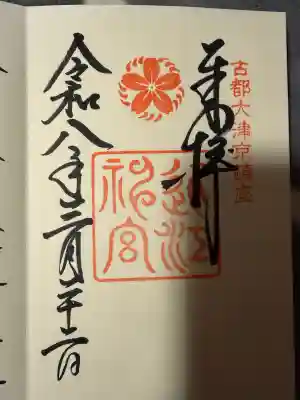 古都大津京鎮座
奉拝
近江
神宮
令和八年三月二十二日